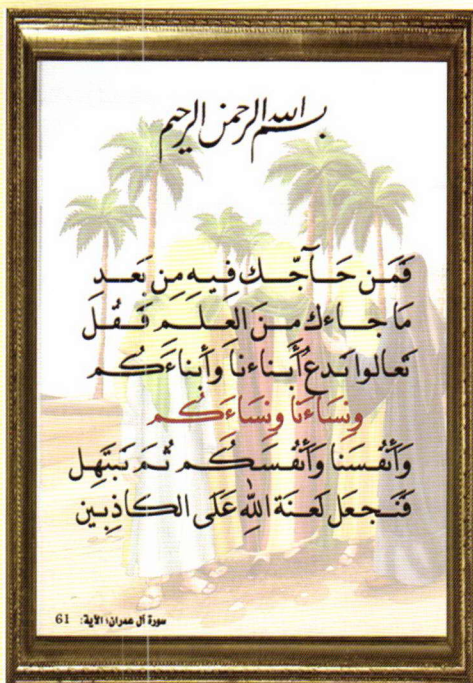 بسم الله الرحمن الرحيم
فَمَن حَـآجَّـك فِـيـهِ مِن بَعـد
مَا جـاءك مِـنَ العِلـم فَـقُـل
تَعالوا نَدعُ أَبناءنا وَأَبناءَكُم
وَنِسَاءَنَا وَنِسَاءَكُم
وَأَنفُسَنا وَأَنفُسَكُم ثُمَّ نَبتَهِل
فَنَجعَل لَعنَة اللهِ عَلَى الكاذِبين
سورة آل عمران؛ الآية: 61